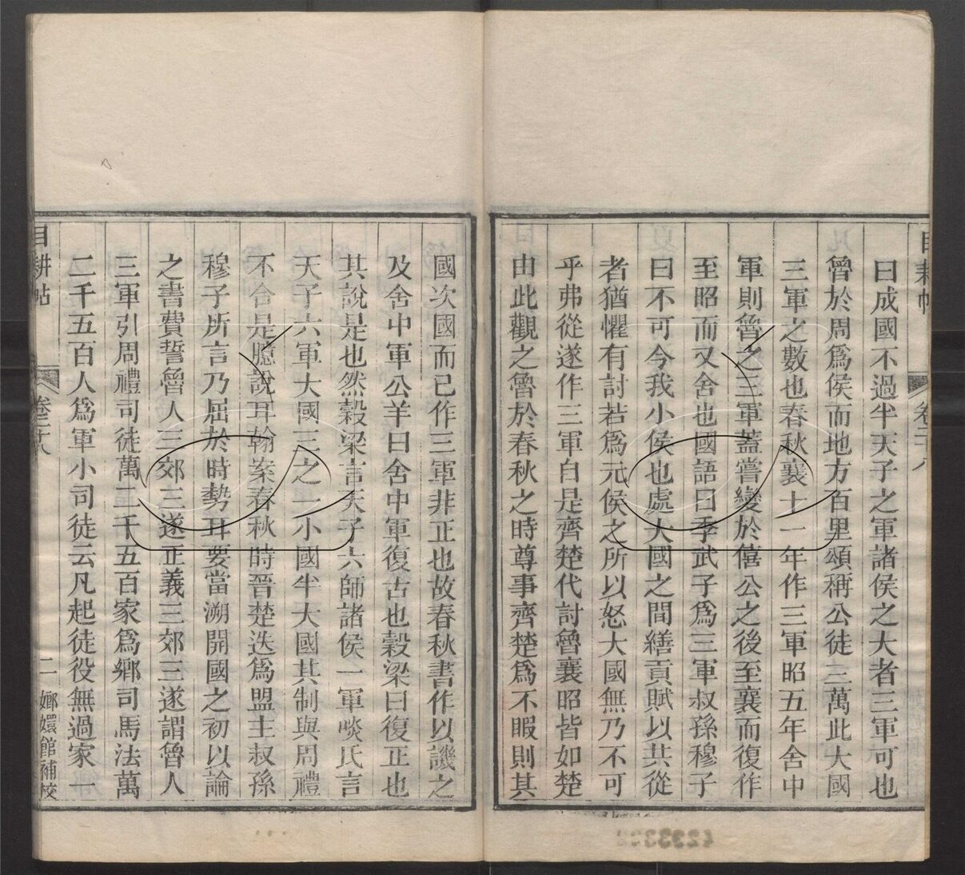 目耕帖
卷二十八
曰成國不過半天子之軍諸侯之大者三軍可也
魯於周爲侯而地方百里頌稱公徒三萬此大國
三軍之數也春秋襄十一年作三軍昭五年舍中
軍則魯之三軍蓋嘗變於僖公之後至襄而復作
至昭而又舍也國語曰季武子爲三軍叔孫穆子
曰不可今我小侯也處大國之間繕貢賦以共從
者猶懼有討若爲元侯之所以怒大國無乃不可
乎弗從遂作三軍自是齊楚代討魯襄昭皆如楚
由此觀之魯於春秋之時尊事齊楚爲不暇則其
國次國而已作三軍非正也故春秋書作以譏之
及舍中軍公羊曰舍中軍復古也穀梁曰復正也
其說是也然穀梁言天子六師諸侯一軍啖氏言
天子六軍大國三之一小國半大國其制與周禮
不合是臆說耳翰案春秋時晉楚迭爲盟主叔孫
穆子所言乃屈於時勢耳要當溯開國之初以論
之書費誓魯人三郊三遂正義三郊三遂謂魯人
三軍引周禮司徒萬二千五百家爲鄉司馬法萬
二千五百人爲軍小司徒云凡起徒役無過家一
目耕帖
卷二十八
二
嫏嬛館補校